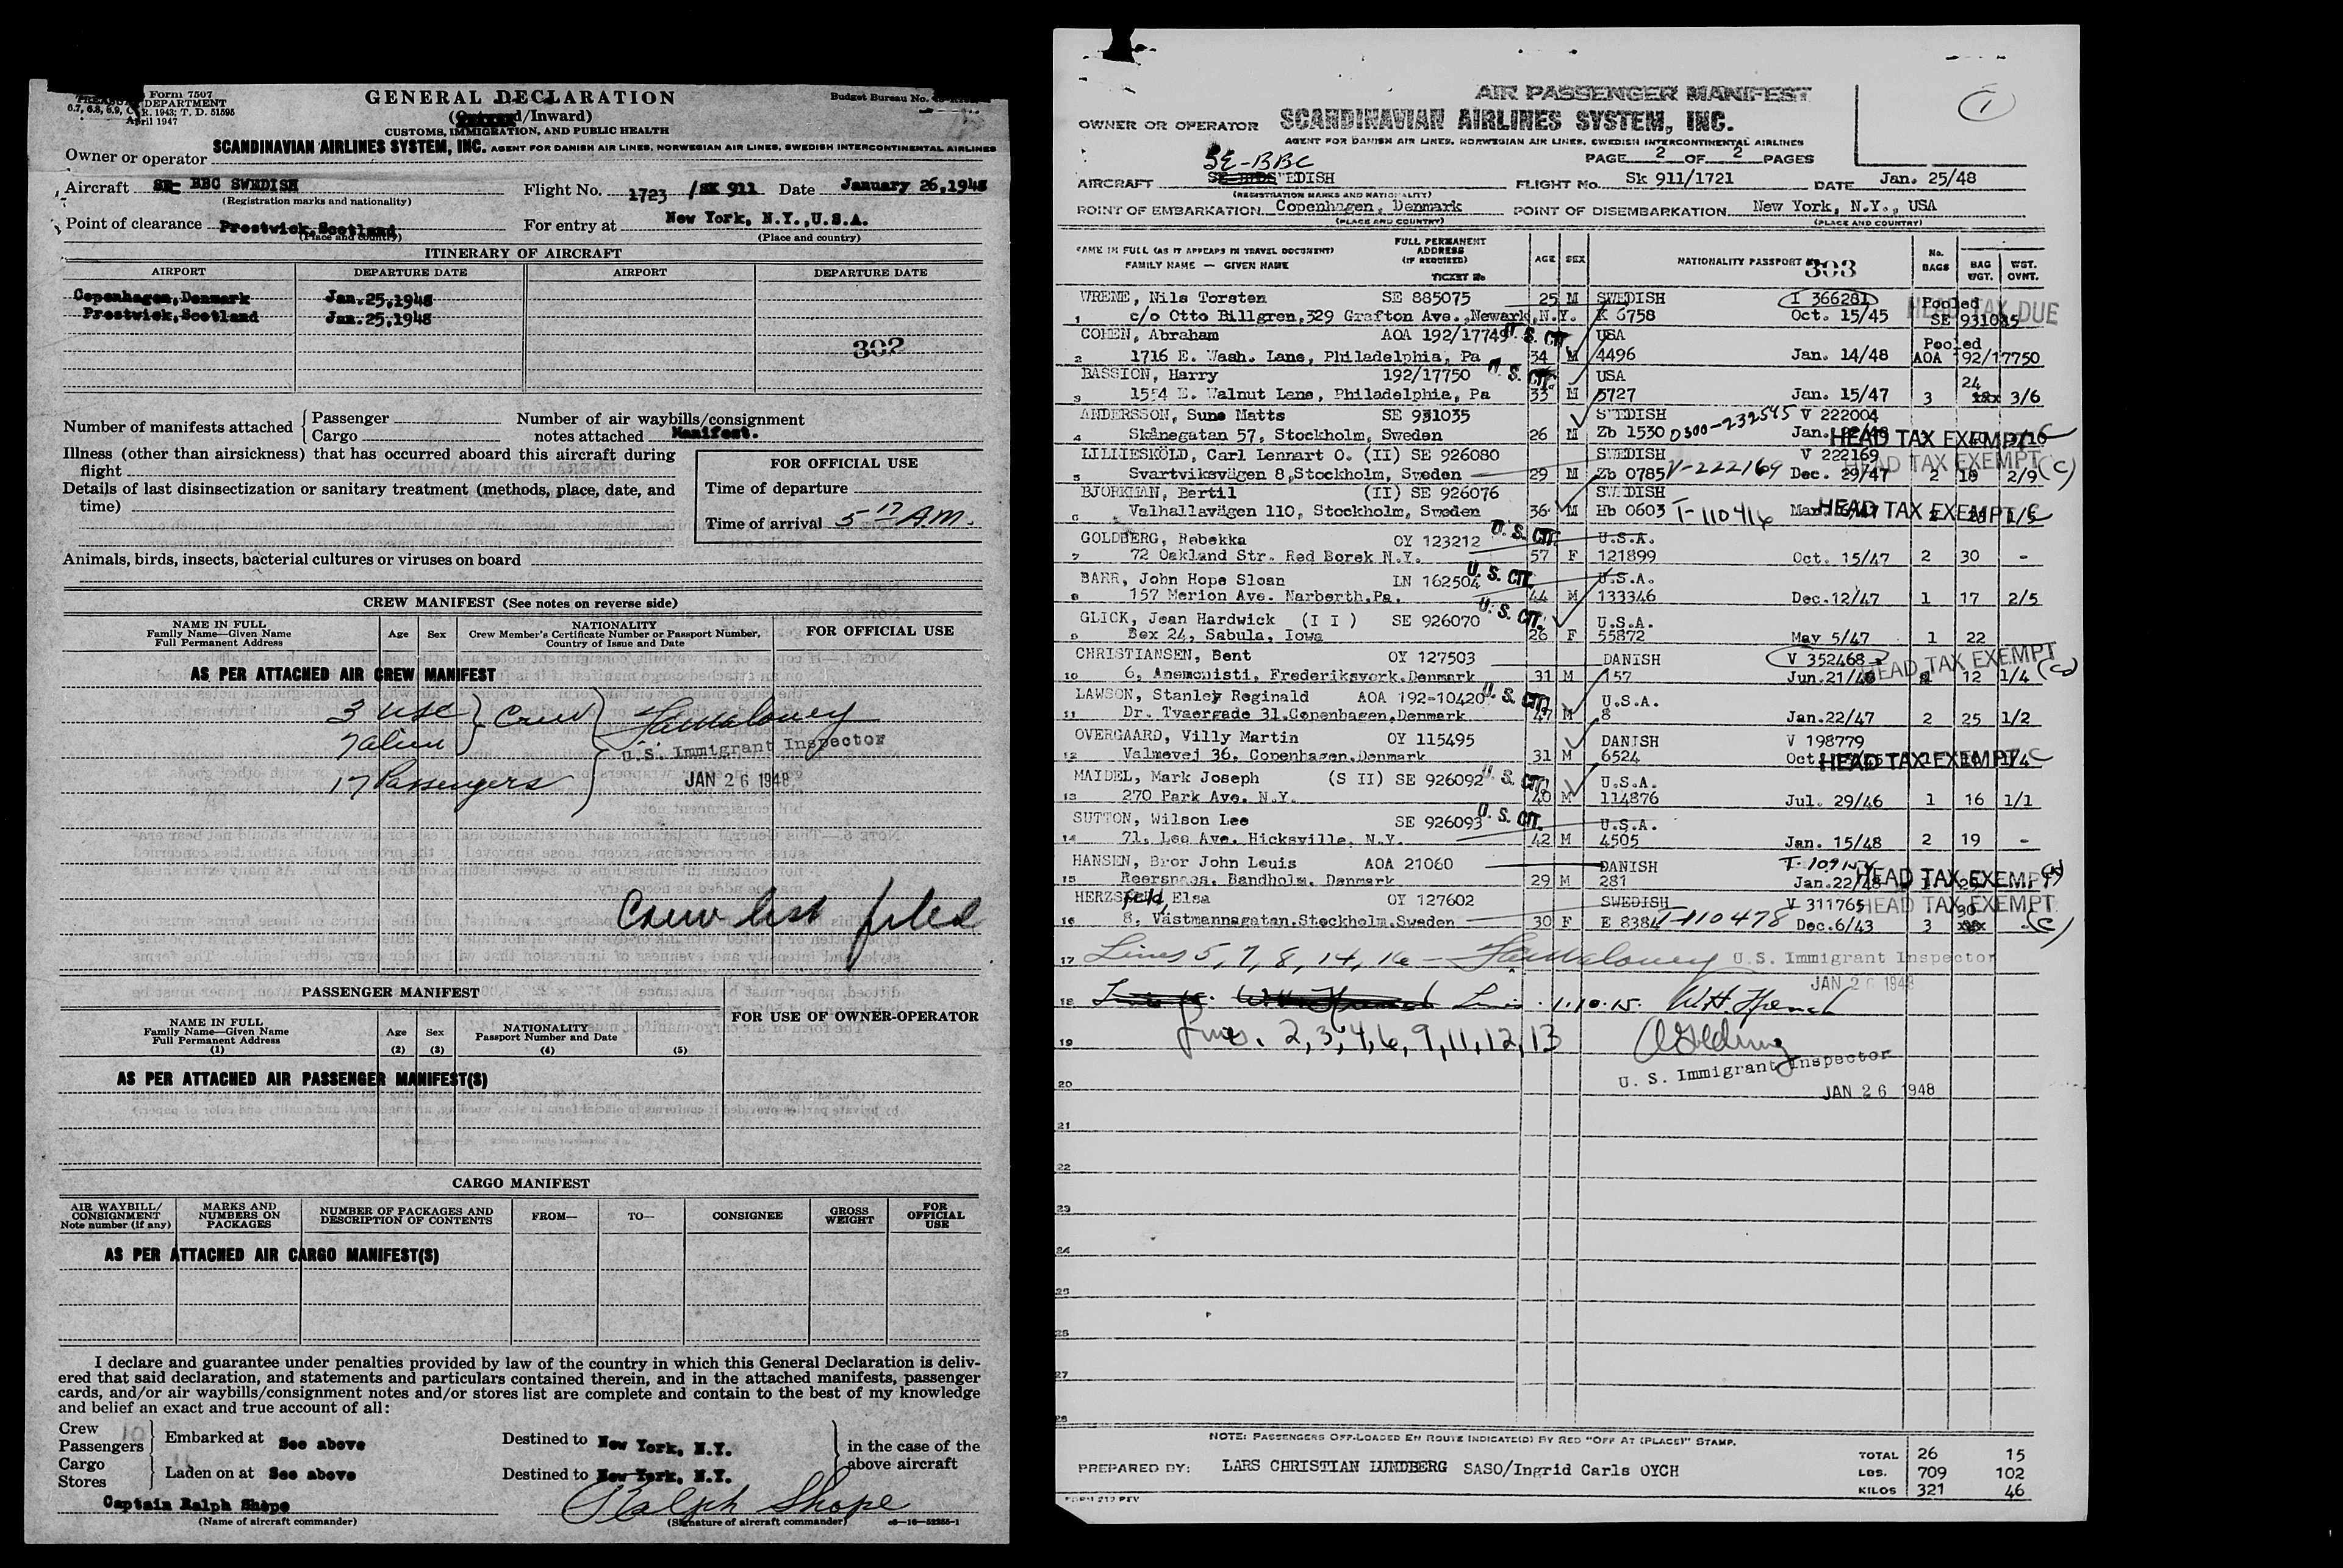 Form 7507
TREASURY DEPARTMENT
6.7, 6.8, 6.9, C. R. 1943; T. D. 51595
April 1947
GENERAL DECLARATION
(Outward/Inward)
CUSTOMS, IMMIGRATION, AND PUBLIC HEALTH
Budget Bureau No.
Owner or operator SCANDINAVIAN AIRLINES SYSTEM, INC. AGENT FOR DANISH AIR LINES, NORWEGIAN AIR LINES, SWEDISH INTERCONTINENTAL AIRLINES
Aircraft SE- BBC SWEDISH Flight No. 1723 /SK 911 Date January 26,1948
(Registration marks and nationality)
Point of clearance Prestwick,Scotland For entry at New York, N.Y.,U.S.A.
(Place and country) (Place and country)
ITINERARY OF AIRCRAFT
AIRPORT DEPARTURE DATE AIRPORT DEPARTURE DATE
Copenhagen,Denmark Jan.25,1948
Prestwick,Scotland Jan.25,1948
302
Number of manifests attached Passenger Cargo
Number of air waybills/consignment notes attached Manifest.
Illness (other than airsickness) that has occurred aboard this aircraft during
flight
Details of last disinsectization or sanitary treatment (methods, place, date, and
time)
FOR OFFICIAL USE
Time of departure
Time of arrival 5 17 AM.
Animals, birds, insects, bacterial cultures or viruses on board
CREW MANIFEST (See notes on reverse side)
NAME IN FULL
Family Name—Given Name
Full Permanent Address
Age Sex
NATIONALITY
Crew Member's Certificate Number or Passport Number,
Country of Issue and Date
FOR OFFICIAL USE
AS PER ATTACHED AIR CREW MANIFEST
3 USC
7 alien
Crew
17 Passengers
U.S. Immigrant Inspector
JAN 26 1948
Crew list filed
PASSENGER MANIFEST
NAME IN FULL
Family Name—Given Name
Full Permanent Address
(1)
Age
(2)
Sex
(3)
NATIONALITY
Passport Number and Date
(4) (5)
FOR USE OF OWNER-OPERATOR
AS PER ATTACHED AIR PASSENGER MANIFEST(S)
CARGO MANIFEST
AIR WAYBILL/
CONSIGNMENT
Note number (if any)
MARKS AND
NUMBERS ON
PACKAGES
NUMBER OF PACKAGES AND
DESCRIPTION OF CONTENTS
FROM— TO— CONSIGNEE
GROSS
WEIGHT
FOR
OFFICIAL
USE
AS PER ATTACHED AIR CARGO MANIFEST(S)
I declare and guarantee under penalties provided by law of the country in which this General Declaration is deliv-
ered that said declaration, and statements and particulars contained therein, and in the attached manifests, passenger
cards, and/or air waybills/consignment notes and/or stores list are complete and contain to the best of my knowledge
and belief an exact and true account of all:
Crew 10
Passengers
Cargo
Stores
Embarked at See above Destined to New York, N.Y.
Laden on at See above Destined to New York, N.Y.
in the case of the
above aircraft
Captain Ralph Shope Ralph Shope
(Name of aircraft commander) (Signature of aircraft commander) c6—16—52255-1
AIR PASSENGER MANIFEST
1
OWNER OR OPERATOR SCANDINAVIAN AIRLINES SYSTEM, INC.
AGENT FOR DANISH AIR LINES, NORWEGIAN AIR LINES, SWEDISH INTERCONTINENTAL AIRLINES
SE-BBC
PAGE 2 OF 2 PAGES
AIRCRAFT EDISH FLIGHT No. Sk 911/1721 DATE Jan. 25/48
(REGISTRATION MARKS AND NATIONALITY)
POINT OF EMBARKATION Copenhagen, Denmark POINT OF DISEMBARKATION New York, N.Y., USA
(PLACE AND COUNTRY) (PLACE AND COUNTRY)
NAME IN FULL (AS IT APPEARS IN TRAVEL DOCUMENT)
FAMILY NAME — GIVEN NAME
FULL PERMANENT
ADDRESS
(IF REQUIRED)
TICKET No
AGE SEX NATIONALITY PASSPORT No 303
No. BAGS BAG WGT. WGT. OVNT.
WRENE, Nils Torsten SE 885075 25 M SWEDISH I 366281 Pooled HEAD TAX DUE
1 c/o Otto Billgren,329 Grafton Ave.,Newark,N.Y. K 6758 Oct. 15/45 SE 931035
COHEN, Abraham AOA 192/17749 U. S. CIT. USA Pooled
2 1716 E. Wash. Lane, Philadelphia, Pa 34 M 4496 Jan. 14/48 AOA 192/17750
BASSION, Harry 192/17750 U. S. CIT. USA 24
3 1554 E. Walnut Lane, Philadelphia, Pa 33 M 5727 Jan. 15/47 3 3/6
ANDERSSON, Sune Matts SE 931035 SWEDISH 0300-232545 V 222004
4 Skånegatan 57, Stockholm, Sweden 26 M Zb 1530 Jan. HEAD TAX EXEMPT C
LILLIESKÖLD, Carl Lennart O. (II) SE 926080 SWEDISH V 222169 HEAD TAX EXEMPT
5 Svartviksvägen 8,Stockholm, Sweden 29 M Zb 0785 V-222169 Dec. 29/47 2 18 2/9 (C)
BJORKMAN, Bertil (II) SE 926076 SWEDISH
6 Valhallavägen 110, Stockholm, Sweden 36 M Hb 0603 T-110416 HEAD TAX EXEMPT C 1/5
GOLDBERG, Rebekka OY 123212 U. S. CIT. U.S.A.
7 72 Oakland Str. Red Borek N.Y. 57 F 121899 Oct. 15/47 2 30 -
BARR, John Hope Sloan LN 162504 U. S. CIT. U.S.A.
8 157 Merion Ave. Narberth,Pa. 44 M 133346 Dec.12/47 1 17 2/5
GLICK, Jean Hardwick (I I ) SE 926070 U. S. CIT. U.S.A.
9 Box 24, Sabula, Iowa 26 F 55872 May 5/47 1 22
CHRISTIANSEN, Bent OY 127503 DANISH V 352468 HEAD TAX EXEMPT
10 6, Anemonisti, Frederiksvork.Denmark 31 M 157 Jun.21/46 12 1/4
LAWSON, Stanley Reginald AOA 192-10420 U. S. CIT. U.S.A.
11 Dr. Tvaergade 31.Copenhagen,Denmark 47 M 8 Jan.22/47 2 25 1/2
OVERGAARD, Villy Martin OY 115495 DANISH V 198779
12 Valmevej 36, Copenhagen,Denmark 31 M 6524 Oct. HEAD TAX EXEMPT C 1/4
MAIDEL, Mark Joseph (S II) SE 926092 U. S. CIT. U.S.A.
13 270 Park Ave. N.Y. 40 M 114876 Jul. 29/46 1 16 1/1
SUTTON, Wilson Lee SE 926093 U. S. CIT. U.S.A.
14 71, Lee Ave. Hicksville, N.Y. 42 M 4505 Jan. 15/48 2 19 -
HANSEN, Bror John Louis AOA 21060 DANISH
15 Reersnaes, Bandholm, Denmark 29 M 281 Jan.22/48 HEAD TAX EXEMPT
HERZSfeld Elsa OY 127602 SWEDISH V 311765 HEAD TAX EXEMPT
16 8, Västmannagatan.Stockholm.Sweden 30 F E 8384 T-110478 Dec.6/43 3 30 - (C)
17 Lines 5, 7, 8, 14, 16 — U.S. Immigrant Inspector
JAN 26 1948
18 Lines 1.10.15. W.H. French
19 Lines. 2, 3, 4, 6, 9, 11, 12, 13
U. S. Immigrant Inspector
20
JAN 26 1948
21
22
23
24
25
26
27
28
NOTE: PASSENGERS OFF-LOADED EN ROUTE INDICATE(D) BY RED "OFF AT (PLACE)" STAMP.
PREPARED BY: LARS CHRISTIAN LUNDBERG SASO/Ingrid Carls OYCH
TOTAL 26 15
LBS. 709 102
KILOS 321 46
FORM 212 REV